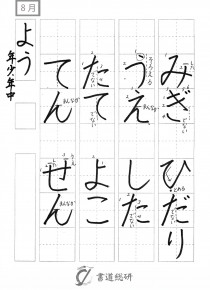 8月
よう
年少・年中
みぎ
ひだり
うえ
した
たて
よこ
てん
せん
書道総研